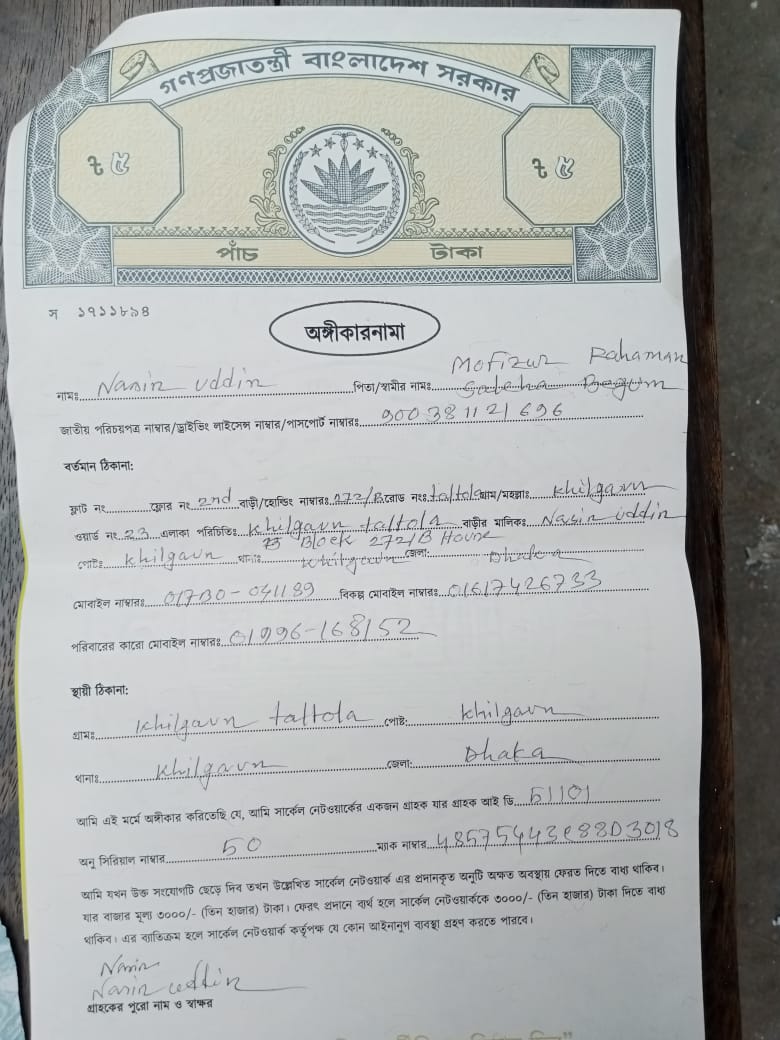 গণপ্রজাতন্ত্রী বাংলাদেশ সরকার
৳ ৫ ৳ ৫
পাঁচ টাকা
স ১৭১১৮৯৪
অঙ্গীকারনামা
নামঃ Nasir uddin পিতা/স্বামীর নামঃ Mofizur Rahaman
জাতীয় পরিচয়পত্র নাম্বার/ড্রাইভিং লাইসেন্স নাম্বার/পাসপোর্ট নাম্বারঃ 900381121696
বর্তমান ঠিকানা:
ফ্লাট নং ফ্লোর নং 2nd বাড়ী/হোল্ডিং নাম্বারঃ 272/B রোড নংঃ taltola গ্রাম/মহল্লাঃ khilgavn
ওয়ার্ড নং 23 এলাকা পরিচিতিঃ khilgavn taltola বাড়ীর মালিকঃ Nasir uddin
Block 272/B House
পোষ্টঃ khilgavn থানাঃ khilgavn জেলা: Dhaka
মোবাইল নাম্বারঃ 01730-041189 বিকল্প মোবাইল নাম্বারঃ 01617426733
পরিবারের কারো মোবাইল নাম্বারঃ 01996-168152
স্থায়ী ঠিকানা:
গ্রামঃ khilgavn taltola পোষ্ট: khilgavn
থানাঃ khilgavn জেলা: Dhaka
আমি এই মর্মে অঙ্গীকার করিতেছি যে, আমি সার্কেল নেটওয়ার্কের একজন গ্রাহক যার গ্রাহক আই ডি 51101
অনু সিরিয়াল নাম্বার 50 ম্যাক নাম্বার 48575443E88D3018
আমি যখন উক্ত সংযোগটি ছেড়ে দিব তখন উল্লেখিত সার্কেল নেটওয়ার্ক এর প্রদানকৃত অনুটি অক্ষত অবস্থায় ফেরত দিতে বাধ্য থাকিব।
যার বাজার মূল্য ৩০০০/- (তিন হাজার) টাকা। ফেরৎ প্রদানে ব্যর্থ হলে সার্কেল নেটওয়ার্ককে ৩০০০/- (তিন হাজার) টাকা দিতে বাধ্য
থাকিব। এর ব্যতিক্রম হলে সার্কেল নেটওয়ার্ক কর্তৃপক্ষ যে কোন আইনানুগ ব্যবস্থা গ্রহণ করতে পারবে।
Nasir
Nasir uddin
গ্রাহকের পুরো নাম ও স্বাক্ষর